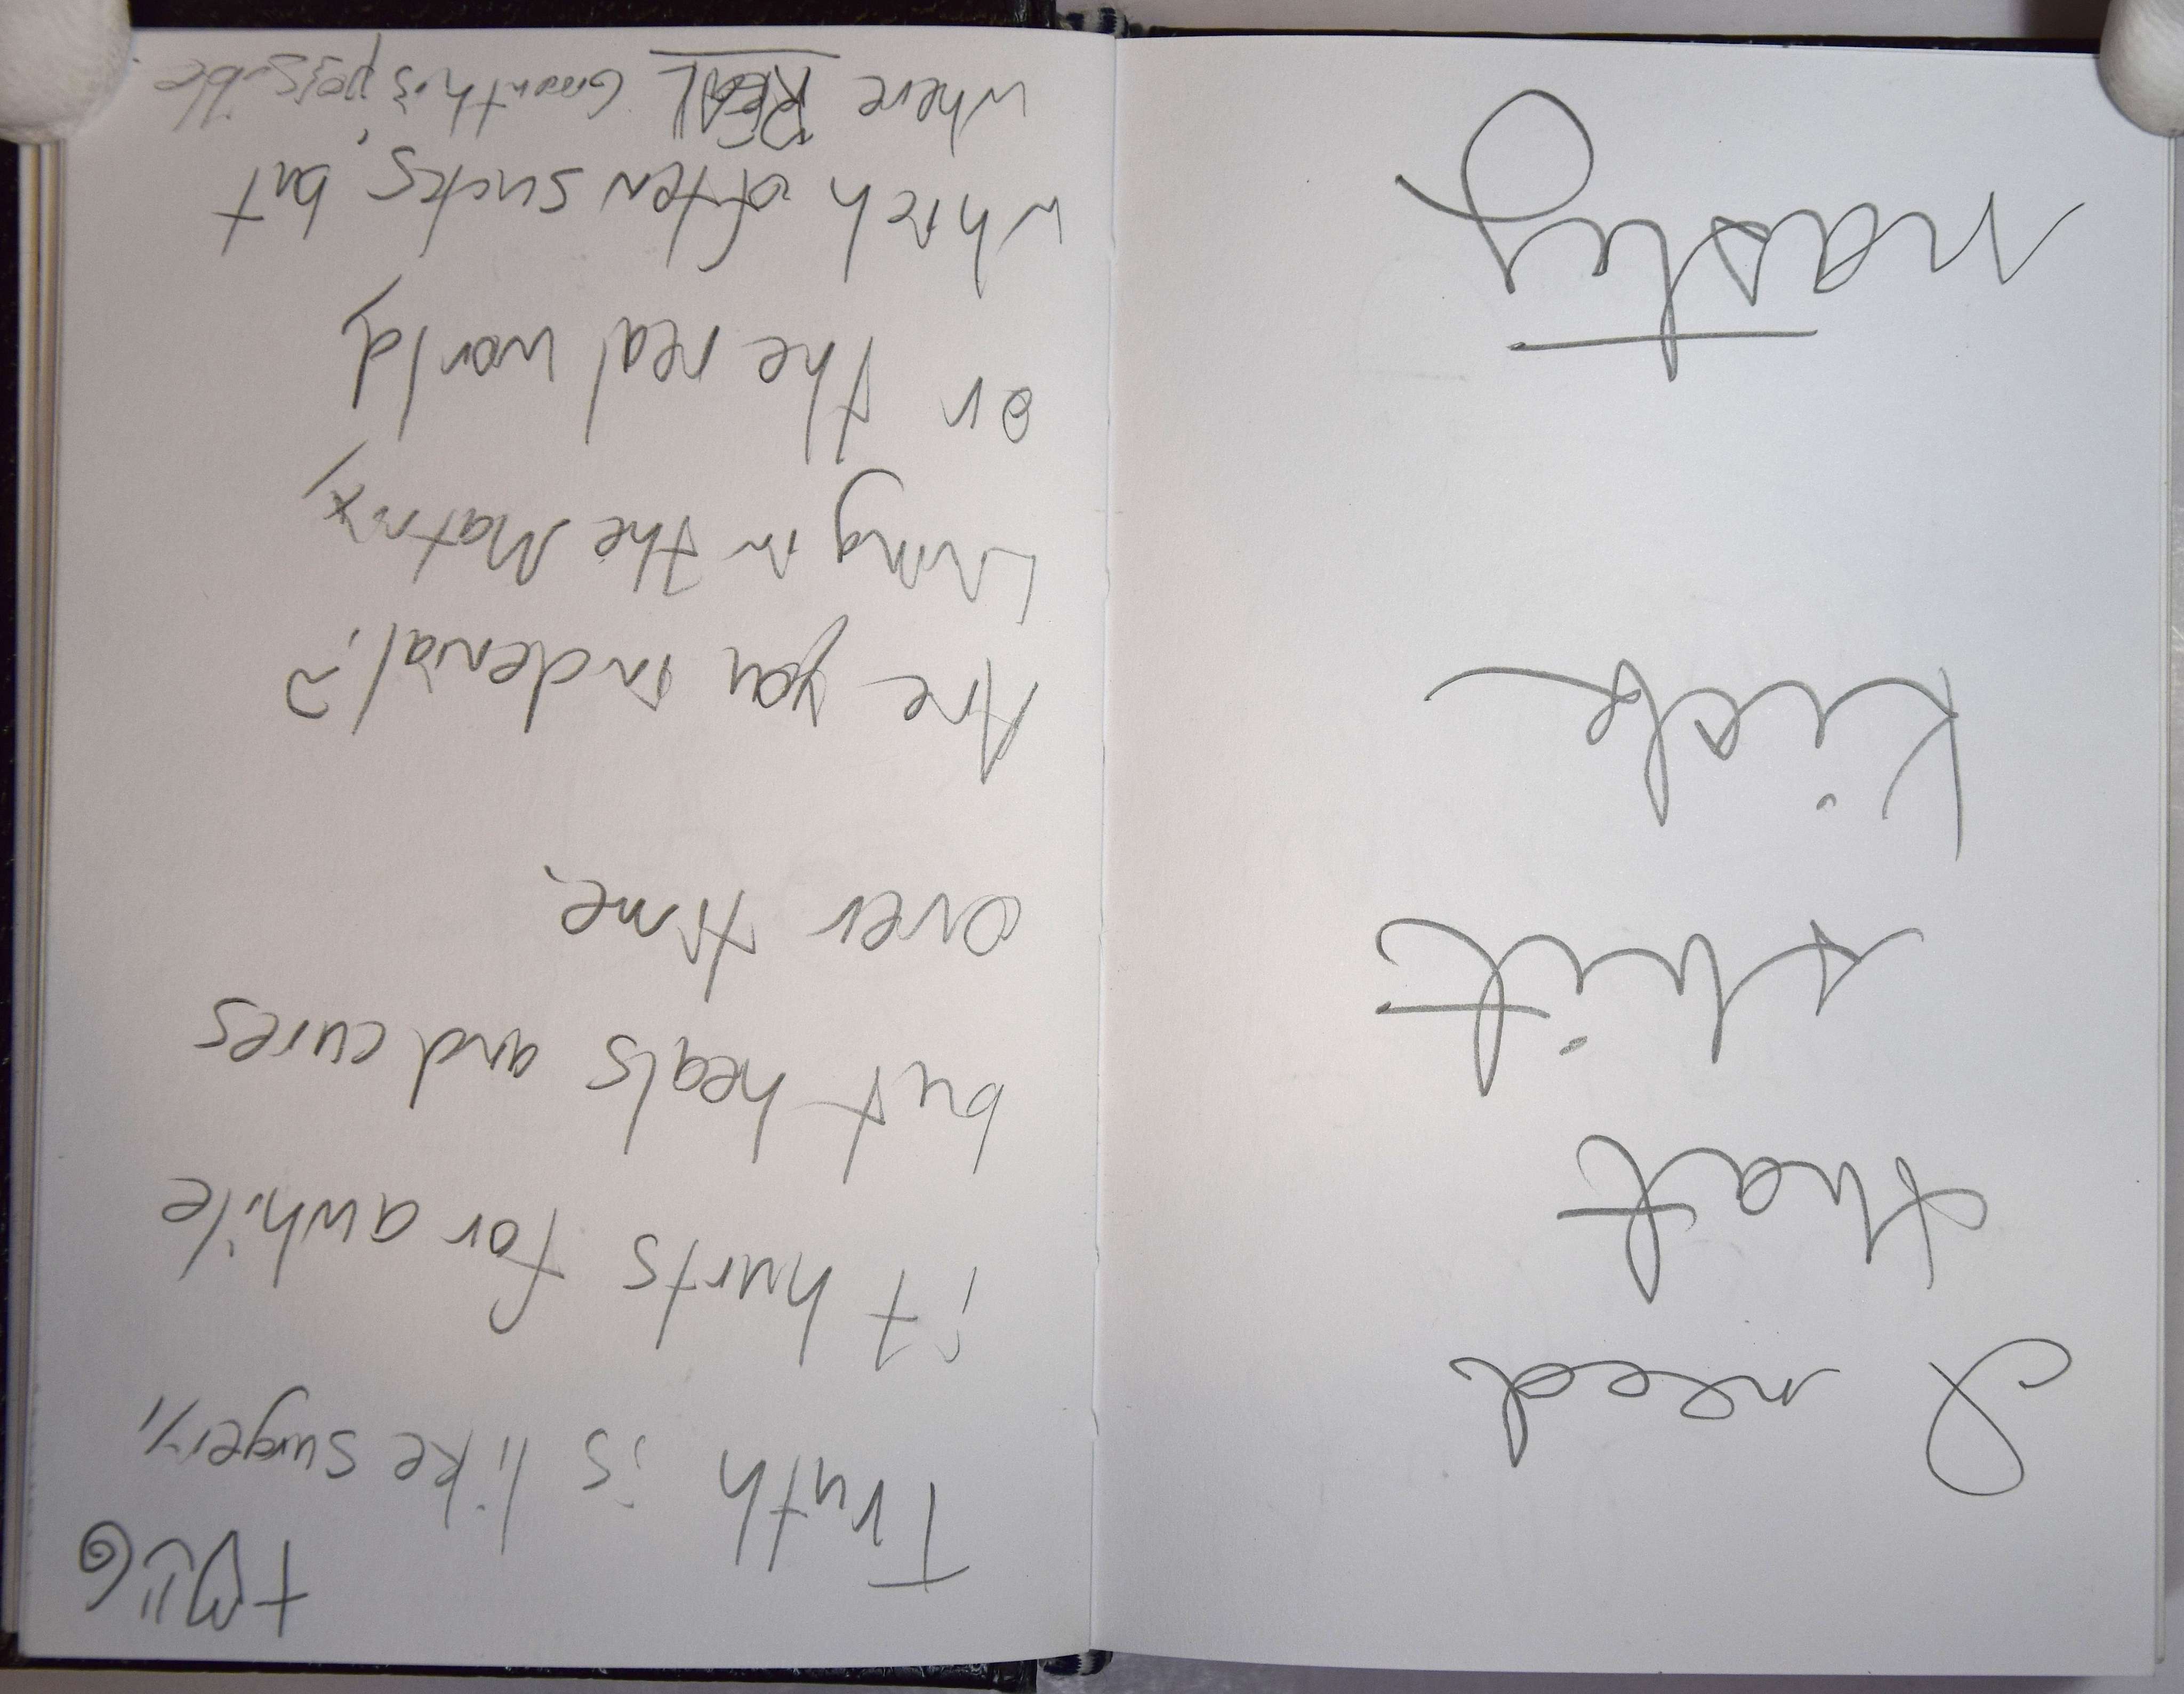 I need
that
shit
nasty
Truth is like surgery,
it hurts for awhile
but heals and cures
over time.
Are you in denial?
Living in the Matrix,
or the real world,
which often sucks, but
where REAL Growth is possible.